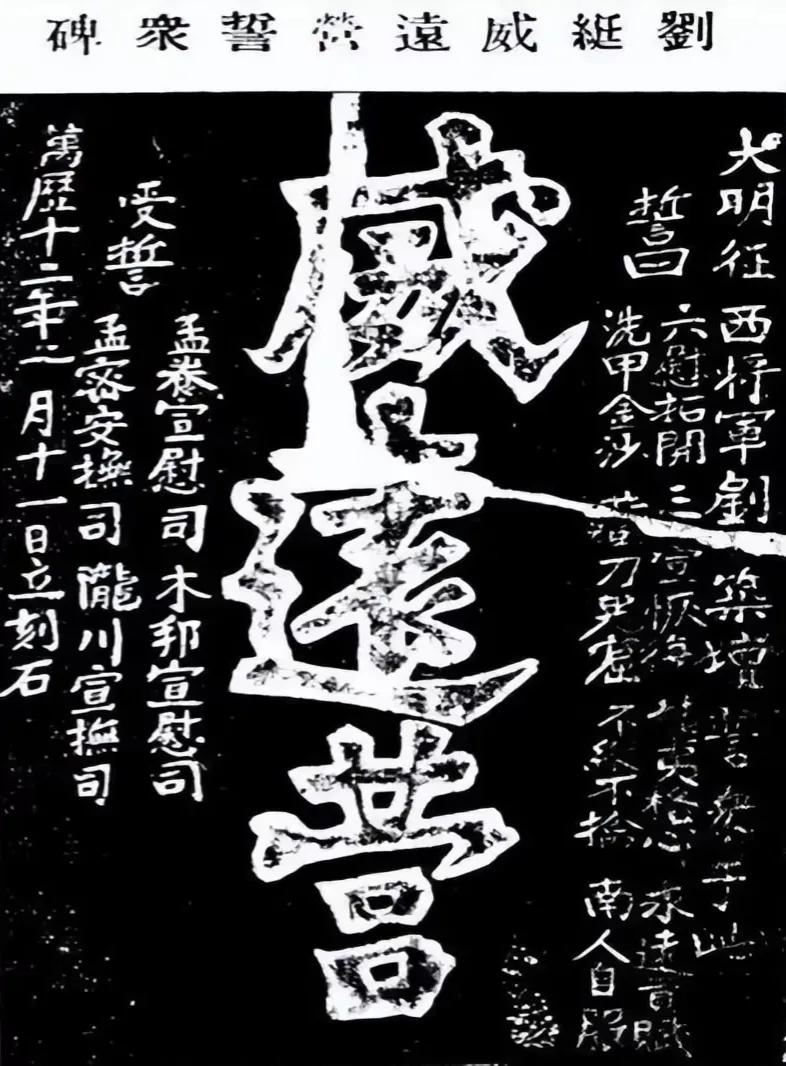 劉綎威遠營誓衆碑
大明征西將軍劉築壇誓衆于此
誓曰
六慰拓開三宣恢復夷格心永遠貢賦
洗甲金沙刀鬼窟不縱不擒南人自服
威遠营
受誓
孟養宣慰司木邦宣慰司
孟密安撫司隴川宣撫司
萬歷十二年二月十一日立刻石